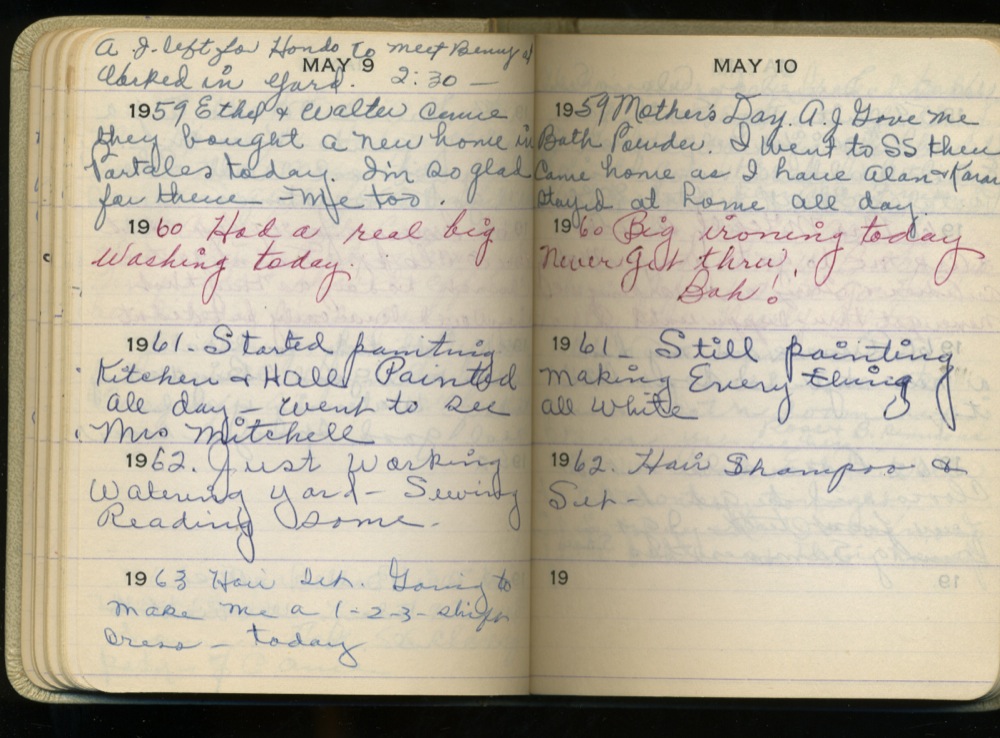 A. J. left for Hondo to meet Benny at
Worked in yard. 2:30 —
MAY 9
1959 Ethel & Walter came
they bought a new home in
Portales today. I'm so glad
for them - Me too.
1960 Had a real big
Washing today.
1961. Started painting
Kitchen & Hall Painted
all day - went to see
Mrs Mitchell
1962. Just Working
Watering yard - Sewing
Reading some.
1963 Hair Set. Going to
make me a 1-2-3-
dress - today
MAY 10
1959 Mother's Day. A. J. Gave me
Bath Powder. I went to SS then
Came home as I have Alan & Karan
Stayed at home all day.
1960 Big ironing today
Never Got thru.
Bah!
1961 - Still painting
making Every thing
all White
1962. Hair Shampoo &
Set -
19